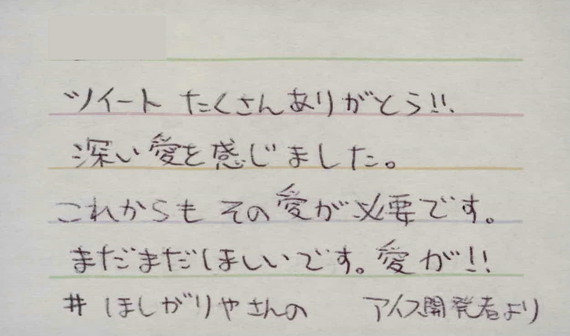 ツイート たくさんありがとう!!
深い愛を感じました。
これからも その愛が必要です。
まだまだほしいです。愛が!!
# ほしがりやさんの アイス開発者より